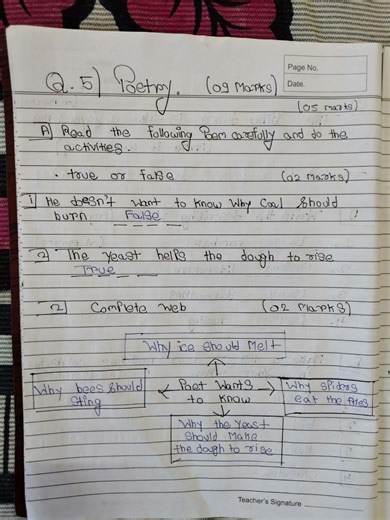 Page No.
Date.
Q.5) Poetry. (09 Marks)
(05 marks)
A) Read the following Poem carefully and do the
activities.
• true or false (02 marks)
1) He doesn't want to know why Coal should
burn. False
2) The yeast helps the dough to rise
True
2) Complete web (02 marks)
Why ice should Melt
Why bees should
sting
Poet Wants
to know
Why spiders
eat the flies
Why the Yeast
should Make
the dough to rise
Teacher's Signature